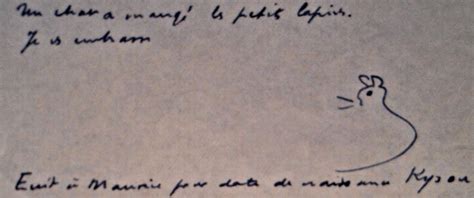 Un chat a mangé les petits lapins.
Je vs embrasse
Ecrit à Maurice pour date de naissance Kyrou